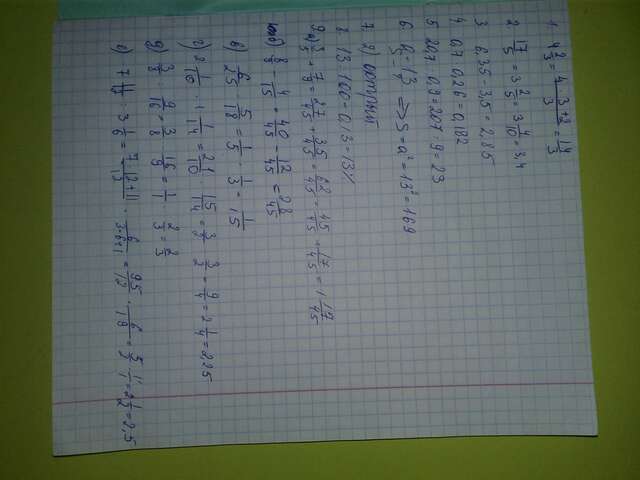 1. 4 2/3 = 4·3+2/3 = 14/3
2. 17/5 = 3 2/5 = 3 4/10 = 3,4
3. 6,35 - 3,5 = 2,85
4. 0,7 · 0,26 = 0,182
5. 207 : 0,9 = 207 : 9 = 23
6. a = 13 ⇒ S = a² = 13² = 169
S - ?
7. 2) острый
8. 13 : 100 = 0,13 = 13%
9. а) 3/5 + 7/9 = 27/45 + 35/45 = 62/45 = 45/45 + 17/45 = 1 17/45
б) 8/9 - 4/15 = 40/45 - 12/45 = 28/45
в) 6/25 · 5/18 = 1/5 · 1/3 = 1/15
г) 2 1/10 · 1 1/14 = 21/10 · 15/14 = 3/2 · 3/2 = 9/4 = 2 1/4 = 2,25
д) 3/8 : 9/16 = 3/8 · 16/9 = 1/1 · 2/3 = 2/3
е) 7 11/12 : 3 1/6 = 7·12+11/12 · 6/3·6+1 = 95/12 · 6/19 = 5/2 · 1/1 = 2 1/2 = 2,5